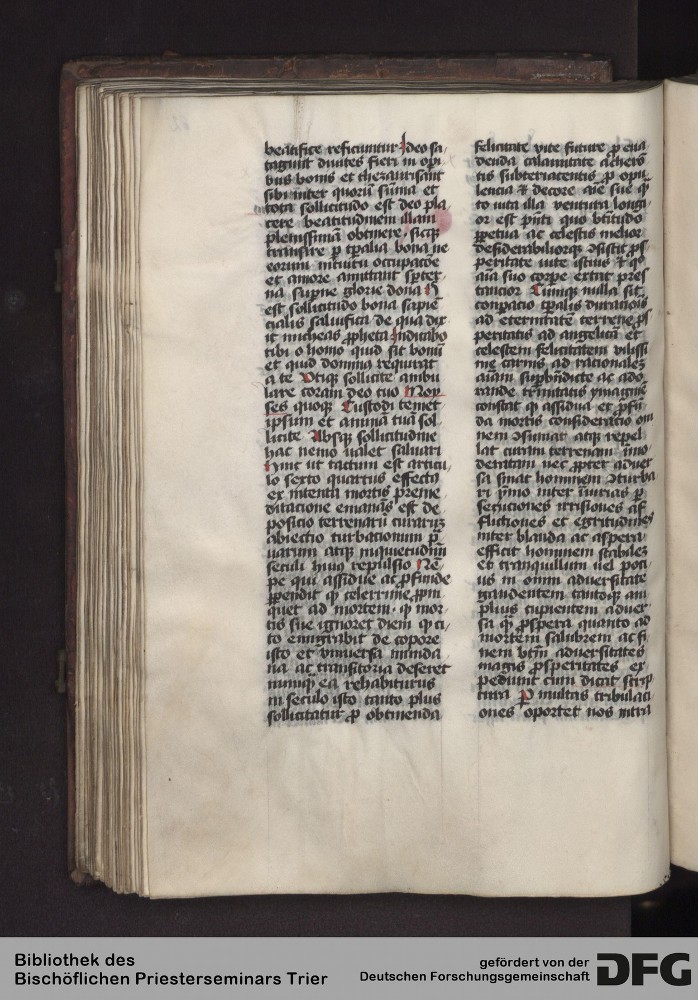 beatifice reficiuntur Ideo sa
tagunt diuites fieri in opi
bus bonis et thezaurisant
sibi inter quorū sūma et
tota sollicitudo est deo pla
cere beatitudinem illam
plenissimā obtinere. sicqꝫ
transire ꝑ tꝑalia bona ne
eorum intuitu occupacōe
et amore amittant sꝑter
na suꝑne glorie dona
est sollicitudo bona sapiē
cialis saluifica de qua dix
it micheas ꝓpheta Indicabo
tibi o homo quid sit bonū
et quid dominus requirat
a te Utiqꝫ sollicite ambu
lare coram deo tuo Moy
ses quoqꝫ Custodi temet
ipsum et animā tuā sol
licite Absqꝫ sollicitudine
hac nemo ualet saluari
Hinc ut tactum est articu
lo sexto quartus effectꝰ
ex intenta mortis preme
ditacione emanās est de
posicio terrenarū curarum
abiectio turbacionum
uarum atqꝫ inquietudinū
seculi huiꝰ repulsio Nē
pe qui assidue ac ꝓfunde
ꝑpendit ꝙ celerrime ꝓpin
quet ad mortem. ꝙ mor
tis sue ignoret diem ꝙ ci
to emigrabit de corpore
isto et vniuersa munda
na ac transitoria deseret
nunqꝫ ea rehabiturus
in seculo isto tanto plus
sollicitatur ꝓ obtinenda
felicitate vite future ꝓ eua
denda calamitate
tis subteriacentis ꝓ opu
lencia et decore aīe sue
to uita illa ventura longi
or est pn̄ti quo btitudo
ꝑpetua ac celestis melior
desiderabiliorqꝫ ꝯsistit ꝓs
peritate uite istius et quo
aīa suo corꝑe extat pres
tancior Cumqꝫ nulla sit
conꝑacio tꝑalis duracionis
ad eternitatē terrene ꝓs
peritatis ad angelicā et
celestem felicitatem vilissi
me carnis ad racionalez
aīam ac ado
rande trinitatis ymagine
constat ꝙ assidua et ꝓfū
da mortis consideracio om
nem ꝯsumat atqꝫ repel
lat curam terrenam īmo
deratam nec ꝓpter aduer
sa sinat hominem ꝯturba
ri ymo inter iniurias ꝑ
secuciones irrisiones af
flictiones et egritudines
inter blanda ac aspera
efficit hominem stabilez
et tranquillum uel poci
us in omni aduersitate
gaudentem tantoqꝫ am
plius cupientem aduer
sa ꝙ ꝓspera quanto ad
mortem salubrem ac fi
nem btm̄ aduersitates
magis ꝓsperitates ex
pediunt cum dicat scrip
tura Per multas tribulaci
ones oportet nos intra
Bibliothek des
Bischöflichen Priesterseminars Trier
gefördert von der
Deutschen Forschungsgemeinschaft
DFG